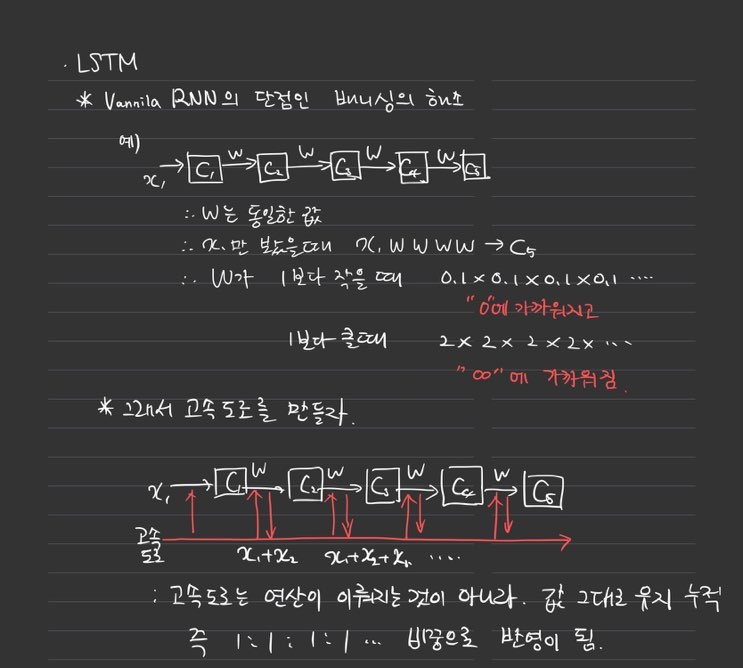 · LSTM
* Vannila RNN의 단점인 배니싱의 해소
예)
x₁ → C₁ W C₂ W C₃ W C₄ W C₅
∴ W는 동일한 값
∴ x₁만 봤을때 x₁ W W W W → C₅
∴ W가 1보다 작을 때 0.1 × 0.1 × 0.1 × 0.1 ····
"0"에 가까워지고
1보다 클때 2 × 2 × 2 × 2 × ···
"∞"에 가까워짐.
* 그래서 고속도로를 만들자.
x₁ → C₁ W C₂ W C₃ W C₄ W C₅
고속
도로
x₁+x₂ x₁+x₂+x₁ ····
: 고속도로는 연산이 이뤄지는것이 아니라. 값 그대로 유지 누적
즉 1:1:1:1 ··· 비중으로 반영이 됨.